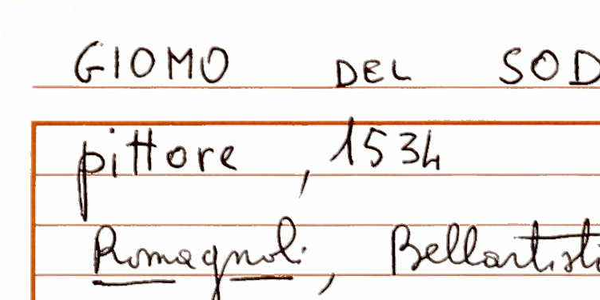 GIOMO DEL SOD
pittore, 1534
Romagnoli, Bellartisti